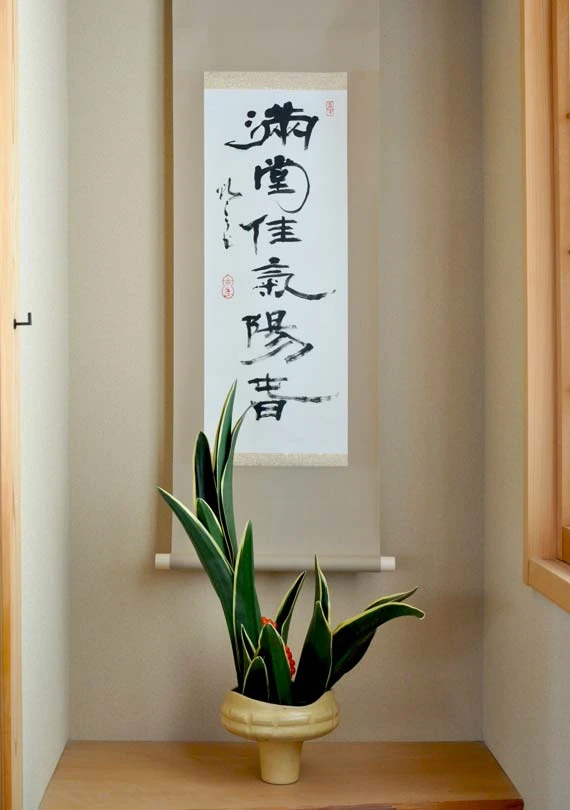 満堂佳氣陽春